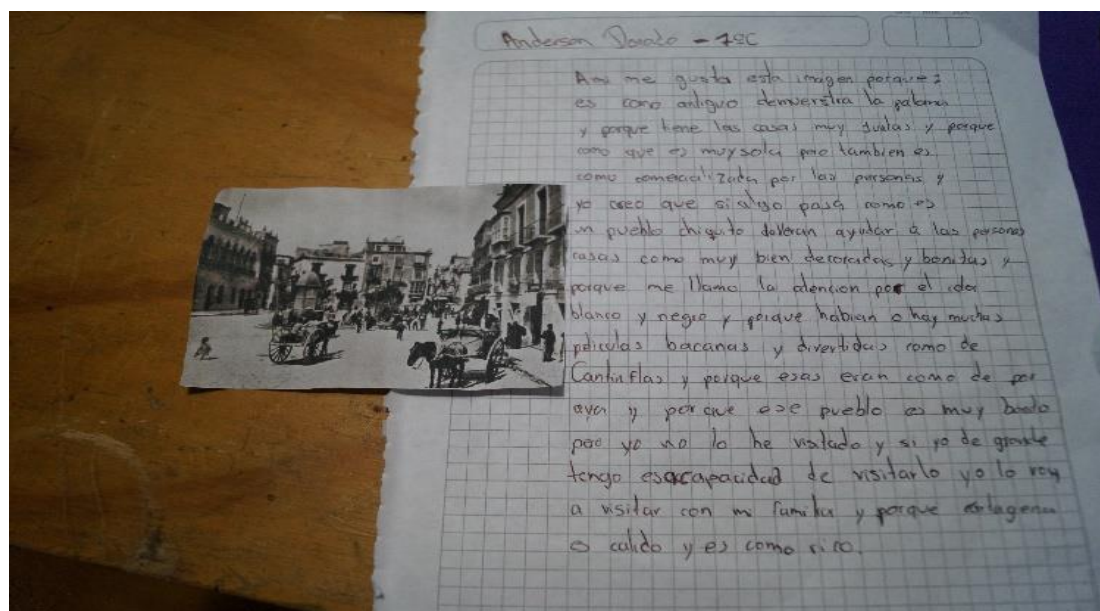 Anderson Dorado - 7ºC
A mi me gusta esta imagen porque:
es como antiguo demuerstra la
y porque tiene las casas muy juntas y porque
como que es muy sola pero tambien es
como comercializada por las personas y
yo creo que si algo pasa como es
un pueblo chiquito deberan ayudar a las personas
casas como muy bien decoradas y bonitas y
porque me llamo la atencion por el color
blanco y negro y porque habian o hay muchas
peliculas bacanas y divertidas como de
Cantinflas y porque esas eran como de por
aya y porque ese pueblo es muy
pero yo no lo he visitado y si yo de grande
tengo esa capacidad de visitarlo yo lo voy
a visitar con mi familia y porque cartagena
es calido y es como rico.